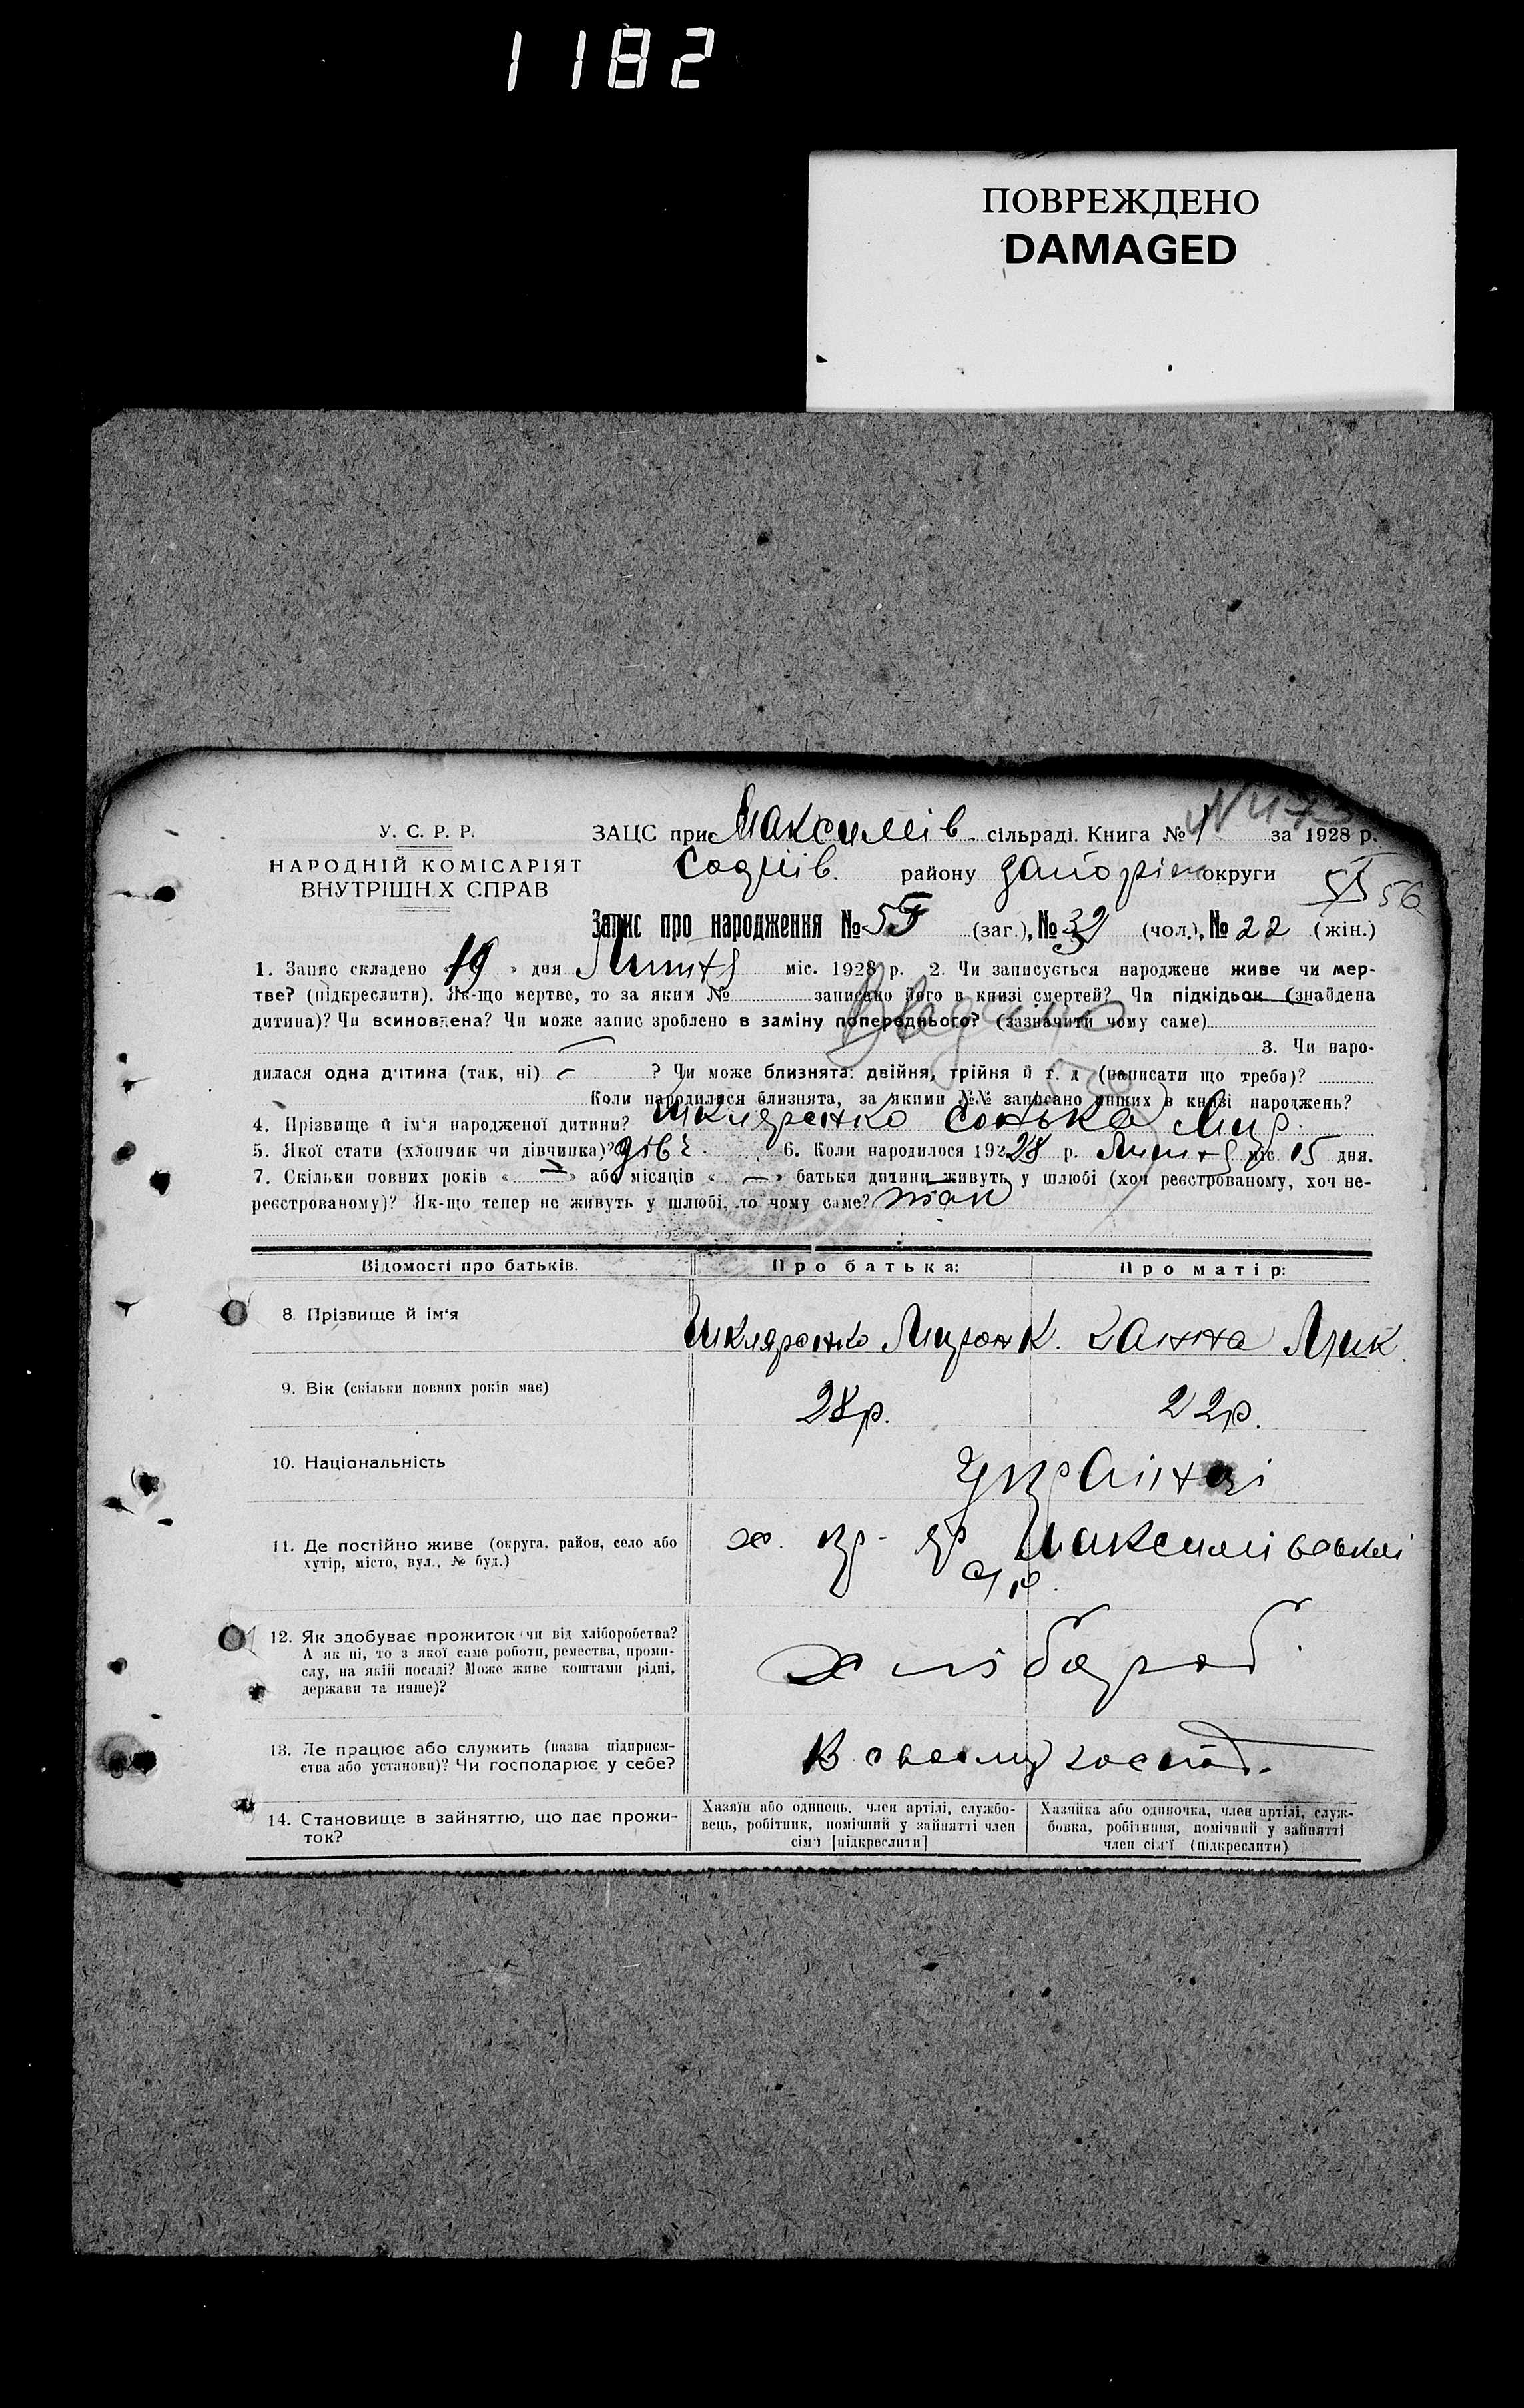 1182
ПОВРЕЖДЕНО
DAMAGED
У. С. Р. Р.
НАРОДНІЙ КОМІСАРІЯТ
ВНУТРІШН.Х СПРАВ
ЗАЦС при Максимів. сільраді. Книга № 1 за 1928 р.
району округи 56
Запис про народження № 55 (заг.), № 32 (чол.), № 22 (жін.)
1. Запис складено « 19 » дня Липня міс. 1928 р. 2. Чи записується народжене живе чи мер-
тве? (підкреслити). Як-що мертве, то за яким № записано його в книзі смертей? Чи підкідьок (знайдена
дитина)? Чи всиновлена? Чи може запис зроблено в заміну попереднього? (зазначити чому саме)
3. Чи наро-
дилася одна дитина (так, ні) — ? Чи може близнята: двійня, трійня й т. д (написати що треба)?
Коли народилися близнята, за якими №№ записано инших в книзі народжень?
4. Прізвище й ім'я народженої дитини? Шкляренко Сонька Мир.
5. Якої стати (хлопчик чи дівчинка)? дівч. 6. Коли народилося 1928 р. Липня міс 15 дня.
7. Скільки повних років « — » або місяців « — » батьки дитини живуть у шлюбі (хоч реєстрованому, хоч не-
реєстрованому)? Як-що тепер не живуть у шлюбі, то чому саме? так
Відомості про батьків. Про батька: Про матір:
8. Прізвище й ім'я Шкляренко Мирон К. Ганна Яик.
9. Вік (скільки повних років має) 28р. 22р.
10. Національність Українці
11. Де постійно живе (округа, район, село або
хутір, місто, вул., № буд.) х. Максимівської
с/р.
12. Як здобуває прожиток чи від хліборобства?
А як ні, то з якої саме роботи, ремества, проми-
слу, на якій посаді? Може живе коштами рідні,
держави та инше)? хлібороб.
13. Де працює або служить (назва підприєм-
ства або установи)? Чи господарює у себе? В своєму господ.
14. Становище в зайняттю, що дає прожи-
ток?
Хазяїн або одинець, член артілі, службо-
вець, робітник, помічний у зайнятті член
сім'ї [підкреслити]
Хазяйка або одиночка, член артілі, служ-
бовка, робітниця, помічний у зайнятті
член сім'ї (підкреслити)